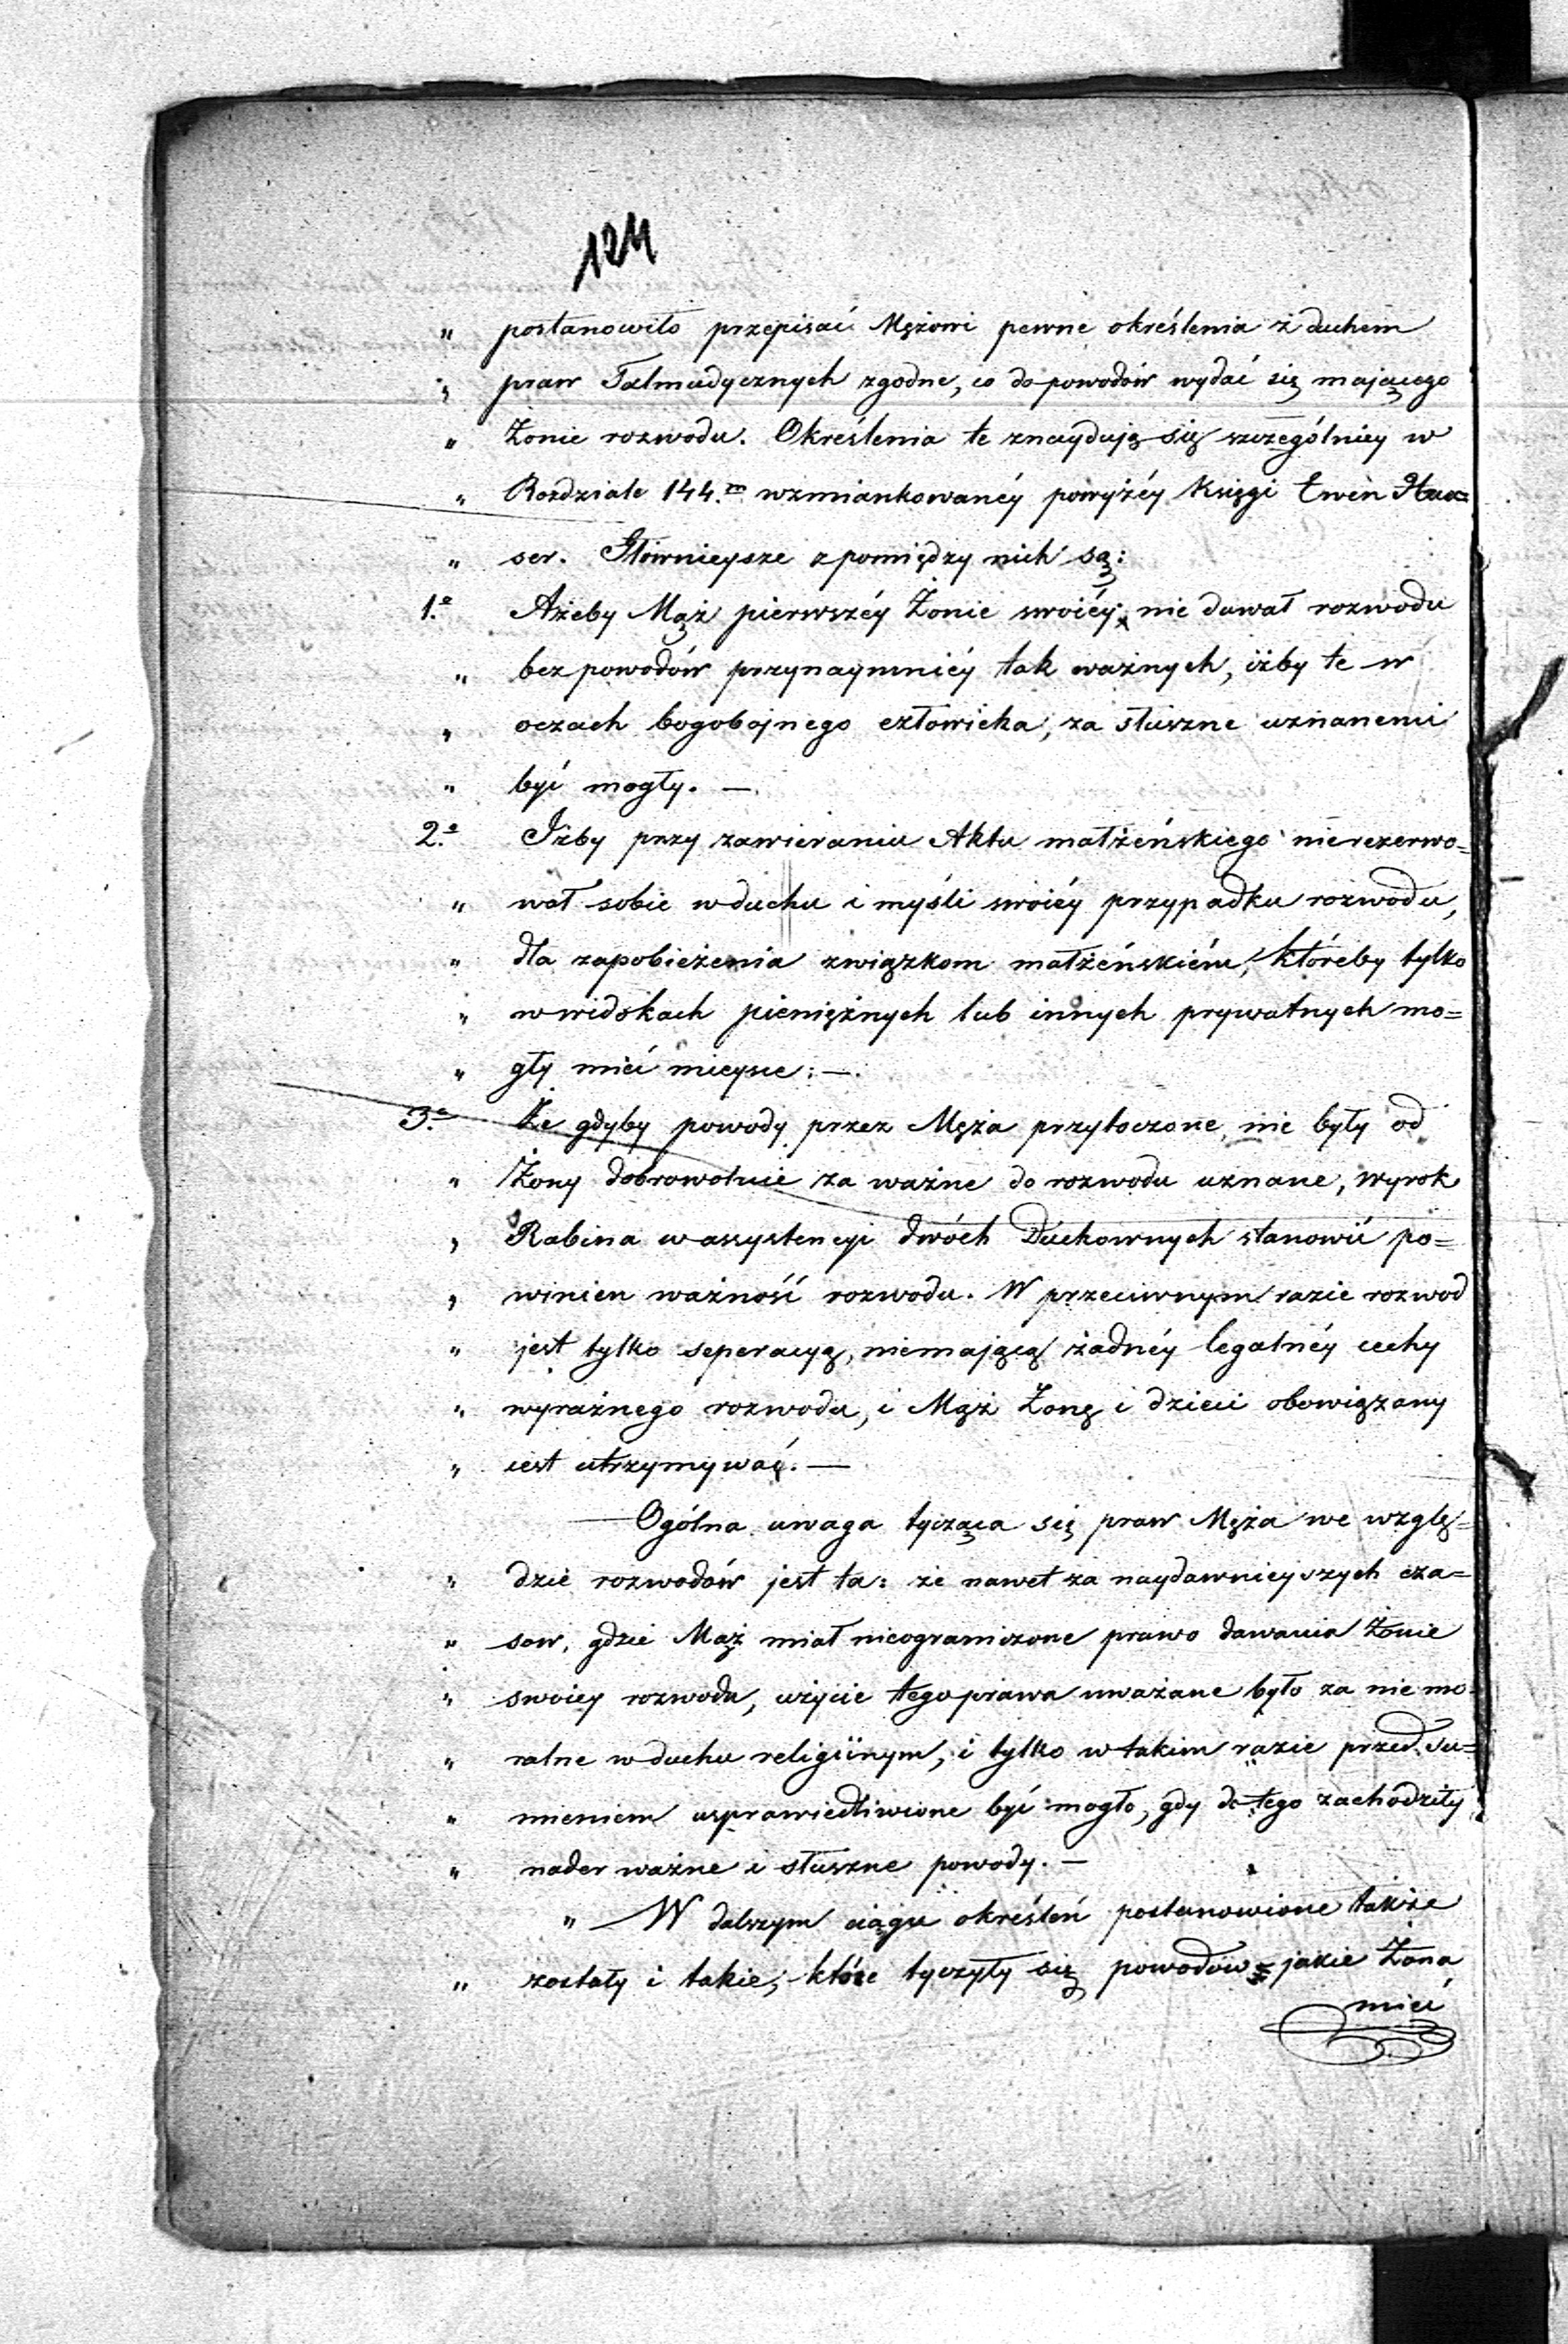 124
" postanowiło przepisać Mężowi pewne określenia z duchem
" praw Talmudycznych zgodne, co do powodów wydać się mającego
" Żonie rozwodu. Określenia te znaydują się szczególniey w
" Rozdziale 144.m wzmiankowanéy powyżéy Księgi Ewen Haa=
" ser. Głównieysze z pomiędzy nich są:
1.e Ażeby Mąż pierwszéy Żonie swoiéy, nie dawał rozwodu
" bez powodów przynaymniéy tak ważnych, iżby te w
" oczach bogobojnego człowieka, za słuszne uznanemi
" być mogły. —
2.e Iżby przy zawieraniu Aktu małżeńskiego nierezerwo=
" wał sobie w duchu i myśli swoiéy przypadku rozwodu,
" dla zapobieżenia związkom małżeńskiém, któreby tylko
" w widokach pieniężnych lub innych prywatnych mo=
" gły mieć mieysce; —
3.e Że gdyby powody przez Męża przytoczone, nie były od
" Żony dobrowolnie za ważne do rozwodu uznane, wyrok
" Rabina w assystencyi dwóch Duchownych stanowić po=
" winien ważność rozwodu. W przeciwnym razie rozwod
" jest tylko seperacyą, niemającą żadnéy legalnéy cechy
" wyraźnego rozwodu, i Mąż Żonę i dzieci obowiązany
" iest utrzymywać. —
— Ogólna uwaga tycząca się praw Męża we wzglę=
" dzie rozwodów jest ta: że nawet za naydawnieyszych cza=
" sow, gdzie Mąż miał nieograniczone prawo dawania Żonie
" swoiey rozwodu, użycie tego prawa uważane było za nie mo=
" ralne w duchu religiinym, i tylko w takim razie przed su=
" mieniem usprawiedliwione być mogło, gdy do tego zachodziły
" nader ważne i słuszne powody. —
" — W dalszym ciągu określeń postanowione także
" zostały i takie, które tyczyły się powodów jakie Żona
mieć